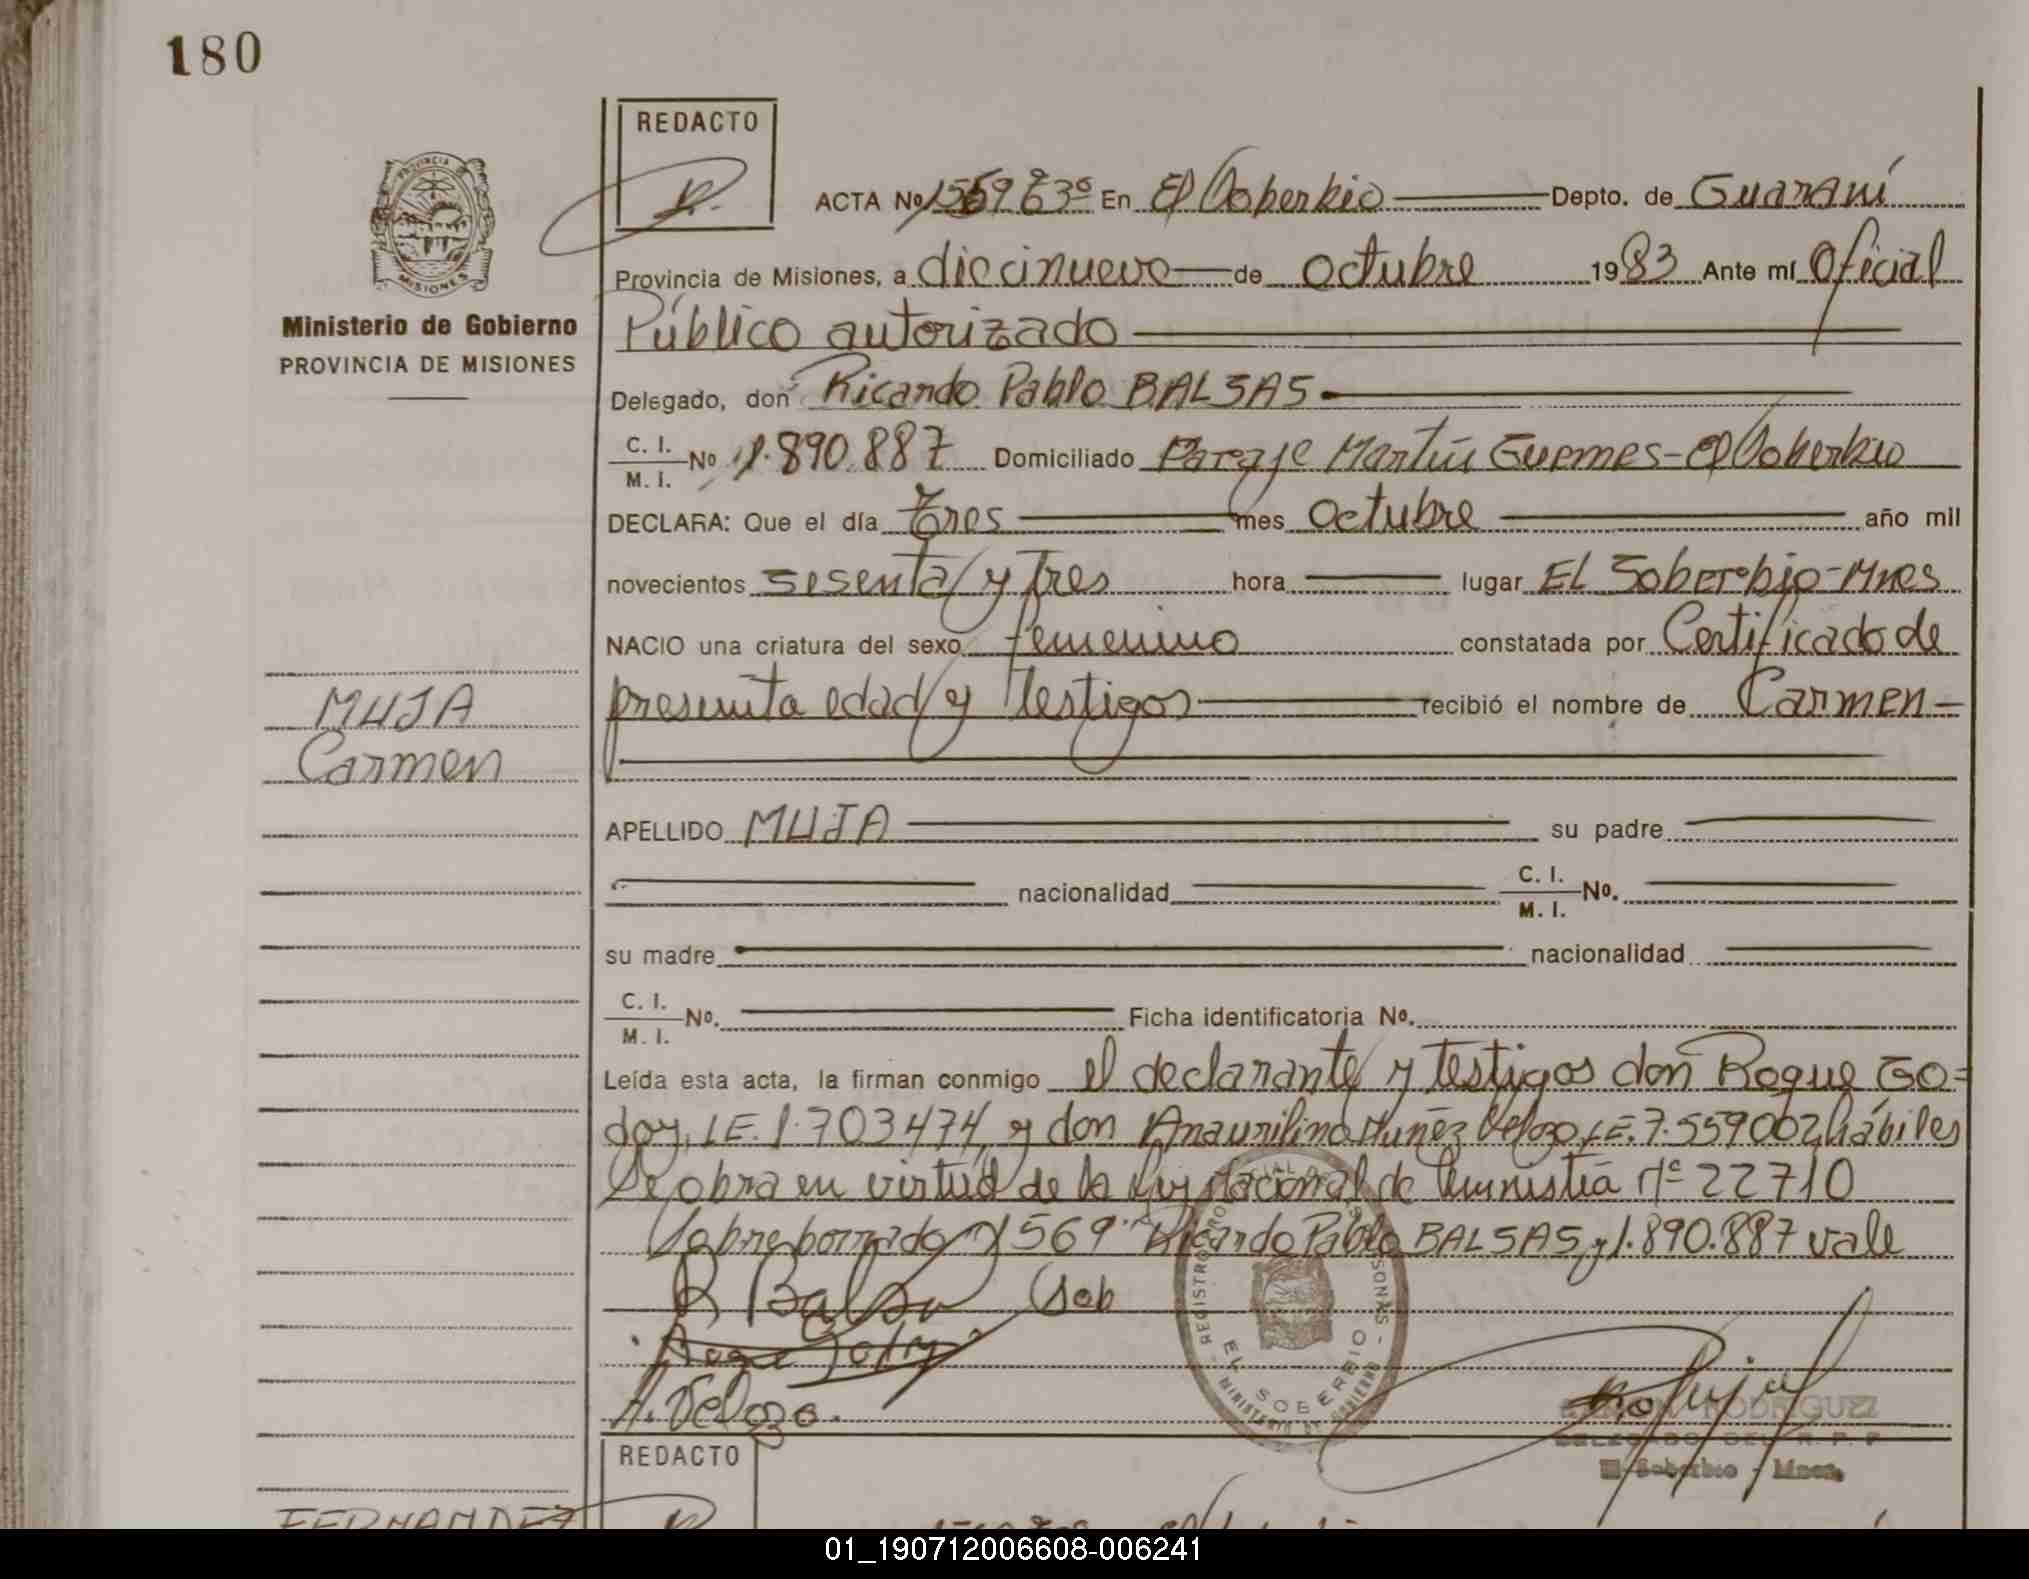 180
REDACTO
ACTA Nº 1569 Tº 3º En El Soberbio Depto. de Guaraní
Provincia de Misiones, a diecinueve de octubre 1983 Ante mí Oficial
Ministerio de Gobierno
PROVINCIA DE MISIONES
Público autorizado
Delegado, don Ricardo Pablo BALSAS
C. I.
M. I. Nº 1.890.887 Domiciliado Paraje Martín Guemes - El Soberbio
DECLARA: Que el día tres mes octubre año mil
novecientos sesenta y tres hora lugar El Soberbio - Mnes
NACIO una criatura del sexo femenino constatada por Certificado de
presunta edad y testigos recibió el nombre de Carmen
MUJA
Carmen
APELLIDO MUJA su padre
nacionalidad C. I.
M. I. Nº.
su madre nacionalidad
C. I.
M. I. Nº. Ficha identificatoria Nº.
Leída esta acta, la firman conmigo el declarante y testigos don Roque Go=
doy, LE. 1.703474, y don Anaurilino Nuñez Velozo, LE. 7.559002, hábiles
Se obra en virtud de la Ley Nacional de Amnistía Nº 22710
Sobreborrado 1569 "Ricardo Pablo BALSAS y 1.890.887 vale
R Balsa Sob
Roque Godoy
A. Velozo.
EL SOBERBIO
MINISTERIO DE GOBIERNO
RODRIGUEZ
DELEGADO DEL R. P. P.
El Soberbio - Mnes.
REDACTO
FERNANDEZ
01_190712006608-006241